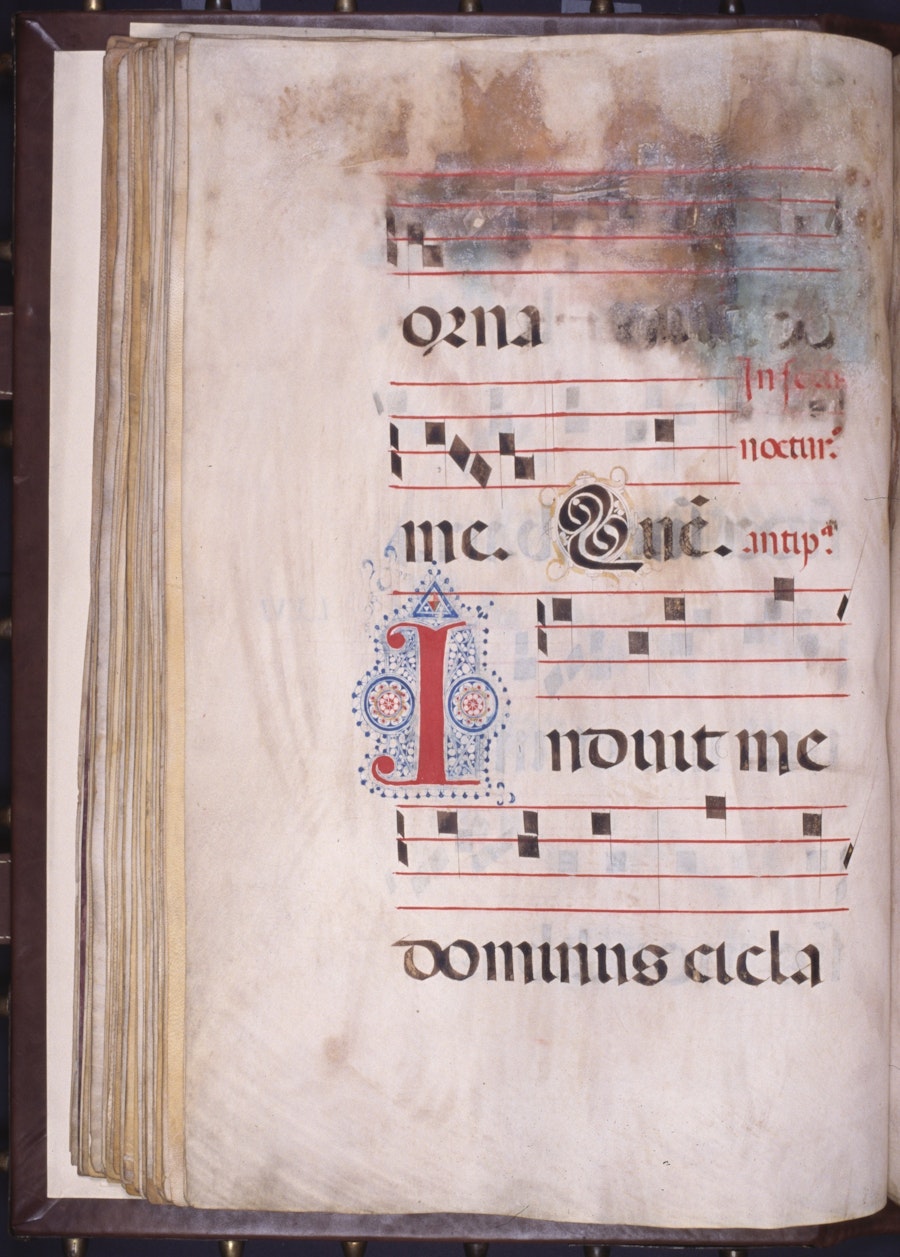 orna
In
noctur.
me. Quē. antipᵃ.
Induit me
dominus cicla